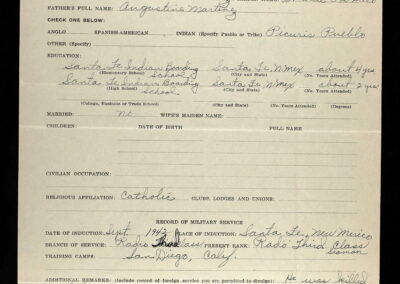 FATHER'S FULL NAME: Augustine Martinez
CHECK ONE BELOW:
ANGLO SPANISH-AMERICAN INDIAN (Specify Pueblo or Tribe) Picuris Pueblo
OTHER (Specify)
EDUCATION:
Santa Fe Indian Boarding School Santa Fe, N Mex about 4 yrs
(Elementary School) (City and State) (No. Years Attended)
Santa Fe Indian Boarding School Santa Fe, N Mex about 2 yrs
(High School) (City and State) (No. Years Attended)
(College, Business or Trade School) (City and State) (No. Years Attended) (Degrees)
MARRIED: no WIFE'S MAIDEN NAME:
CHILDREN: DATE OF BIRTH FULL NAME
CIVILIAN OCCUPATION:
RELIGIOUS AFFILIATION: Catholic CLUBS, LODGES AND UNIONS:
RECORD OF MILITARY SERVICE
DATE OF INDUCTION: Sept. 1942 PLACE OF INDUCTION: Santa Fe, New Mexico
BRANCH OF SERVICE: Radio class PRESENT RANK: Radio Third Class
TRAINING CAMPS: San Diego, Caly.
ADDITIONAL REMARKS: (Include record of foreign service if you are permitted to divulge) He was killed